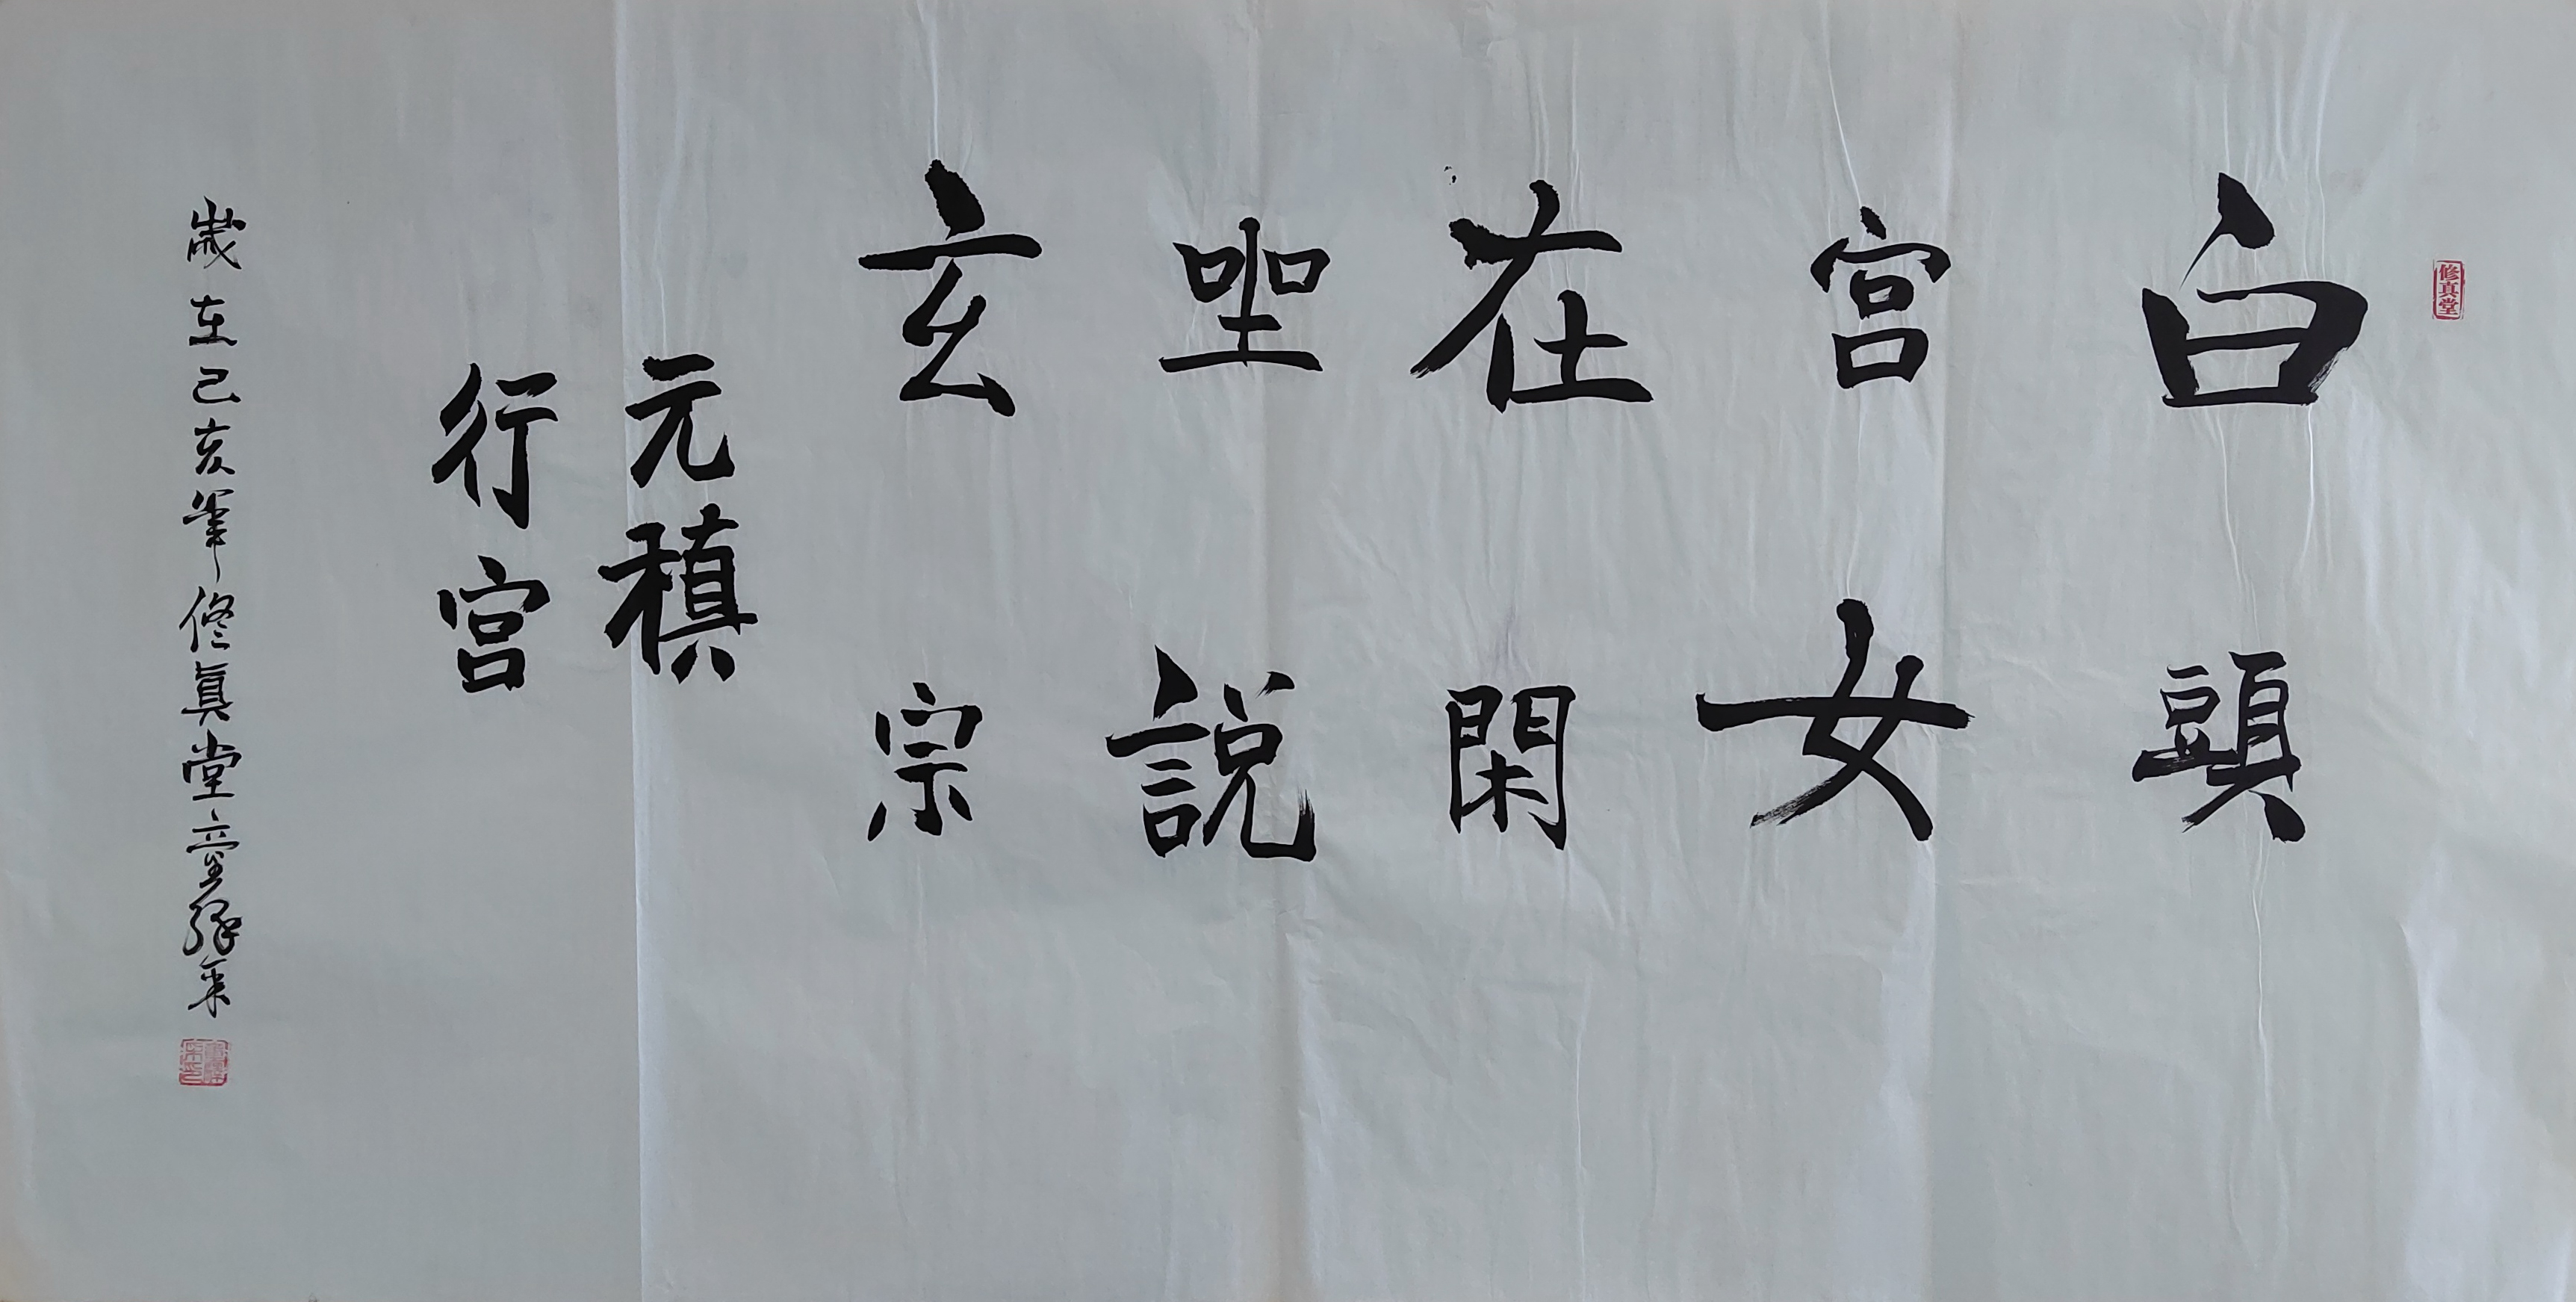 修真堂
白頭
宮女
在閑
聖說
玄宗
元稹
行宮
歲在己亥年修真堂童緣東